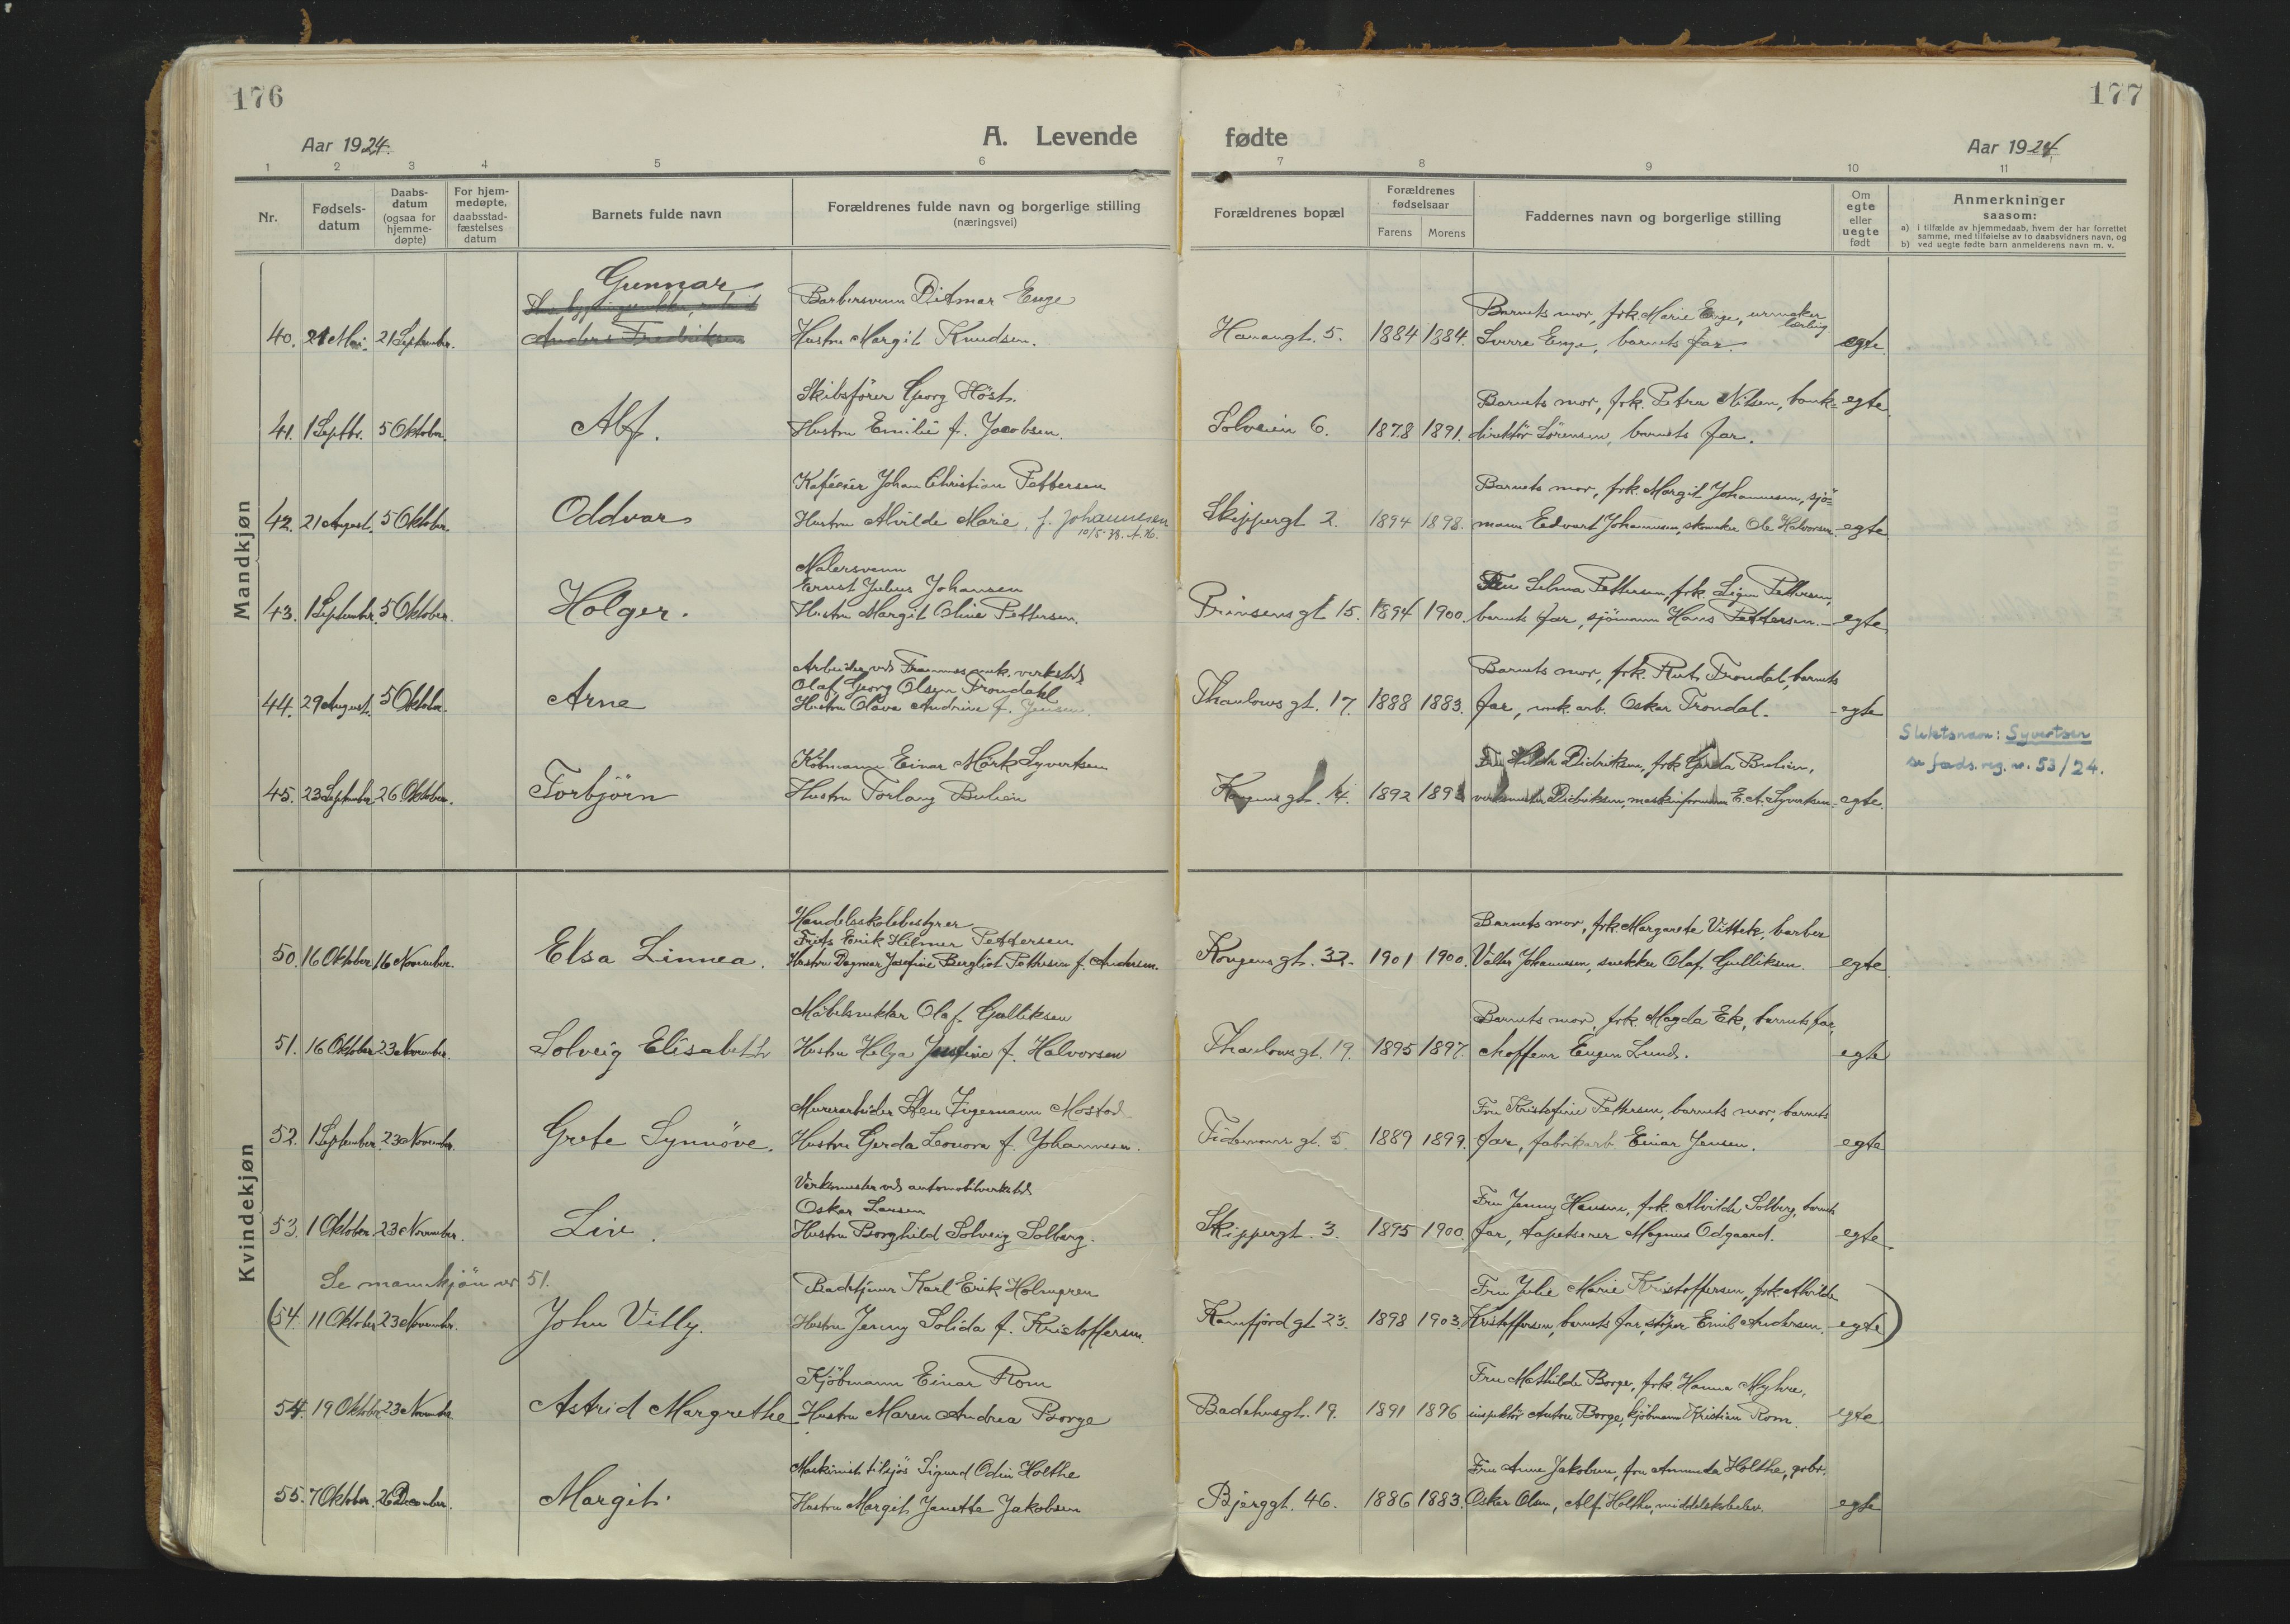 176
177
Aar 1924.
A. Levende
fødte
Aar 1924.
1 2 3 4 5 6 7 8 9 10 11
Nr.
Fødsels-
datum
Daabs-
datum
(ogsaa for
hjemme-
døpte)
For hjem-
medøpte,
daabsstad-
fæstelses
datum
Barnets fulde navn
Forældrenes fulde navn og borgerlige stilling
(næringsvei)
Forældrenes bopæl
Forældrenes
fødselsaar
Farens Morens
Faddernes navn og borgerlige stilling
Om
egte
eller
uegte
født
Anmerkninger
saasom:
a) i tilfælde av hjemmedaab, hvem der har forrettet
samme, med tilføielse av to daabsvidners navn, og
b) ved uegte fødte barn anmelderens navn m. v.
Mandkjøn
Gunnar
Barbersvenn Ditmar Enge
Barnets mor, frk. Marie Enge, urmaker
lærling
40. 21 Mai. 21 September. Anders Fredriksen Hustru Margit Knudsen. 5. 1884 1884. Sverre Enge, barnets far. egte
Skibsfører Georg Höst.
Barnets mor, frk. Petra Nilsen, bank- egte
41. 1 Septbr. 5 Oktober. Alf. Hustru Emilie f. Jacobsen. Solveien 6. 1878 1891. direktör Sörensen, barnets far.
Kaféeier Johan Christian Pettersen
Barnets mor, frk. Margit Johannesen, sjö-
42. 21 August. 5 Oktober. Oddvar Hustru Alvilde Marie, f. Johannesen Skippergt 2. 1894 1898. mann Edvart Johannesen, skomaker Ole Halvorsen. egte
10/5-38. A.H.
Malersvenn
Ernst Julius Johansen
Fru Selma Pettersen, frk. Signe Pettersen,
43. 1 September. 5 Oktober. Holger. Hustru Margit Oline Pettersen. Prinsens gt 15. 1894 1900. barnets far, sjömann Hans Pettersen. egte
Arbeider ved Framnes mek. verksted
Olaf Georg Olsen Trondahl
Barnets mor, frk. Rut Trondal, barnets
44. 29 August. 5 Oktober. Arne Hustru Olava Andrine f. Jensen. Thaulows gt. 17. 1888 1883. far, mek. arb. Oskar Trondal. egte
Slektsnavn: Syvertsen
se føds.reg. nr. 53/24.
Köbmann Einar Mörk Syvertsen
Fru Hilda Didriksen, frk Gerda Bulien,
45. 23 September. 26 Oktober. Torbjörn Hustru Torlaug Bulien Kongens gt. 4. 1892 1893 verksmester Didriksen, maskinformann E. A. Syvertsen. egte.
Kvindekjøn
Handelsskolebestyrer
Frits Erik Hilmer Pettersen
Barnets mor, frk. Margarete Vittek, barber
50. 16 Oktober 16 November. Elsa Linnea. Hustru Dagmar Josefine Bergliot Pettersen f. Andersen. Kongens gt. 32. 1901 1900. Valter Johannesen, snekker Olaf Gulliksen. egte
Möbelsnekker Olaf Gulliksen
Barnets mor, frk. Magda Ek, barnets far,
51. 16 Oktober 23 November. Solveig Elisabeth Hustru Helga Josefine f. Halvorsen Thaulows gt. 19. 1895 1897. choffeur Eugen Lund. egte
Murerarbeider Sten Ingemann Mostad
Fru Kristofine Pettersen, barnets mor, barnets
52. 1 September. 23 November. Grete Synnöve. Hustru Gerda Leonora f. Johannesen. Tidemanns gt. 5 1889 1899. far, fabrikarb. Einar Jensen. egte
Verksmester ved automobilverksted
Oskar Larsen
Fru Jenny Hansen, frk. Alvilde Solberg, barnets
53. 1 Oktober. 23 November. Liv. Hustru Borghild Solveig Solberg. Skippergt. 3. 1895 1900. far, tapetserer Magnus Odgaard. egte
Se mannkjön nr 51.
Badetjener Karl Erik Holmgren
Fru Julie Marie Kristoffersen, frk. Alvilde
(54. 11 Oktober 23 November. John Villy. Hustru Jenny Solida f. Kristoffersen. Kamfjord gt 23. 1898 1903. Kristoffersen, barnets far, stöper Emil Andersen. egte)
Kjöbmann Einar Rom
Fru Mathilde Borge, frk. Hanna Myhre,
54. 19 Oktober 23 November Astrid Margrethe Hustru Maren Andrea Borge Badehusgt. 19. 1891 1896 inspektör Anton Borge, kjöbmann Kristian Rom. egte
Maskinist tilsjös Sigurd Odin Holthe
Fru Anne Jakobsen, fru Amanda Holthe,
55. 7 Oktober. 26 December. Margit. Hustru Margit Janette Jakobsen Bjerggt. 46. 1886 1883. Oskar Olsen, Alf Holthe, middelskoleelev. egte